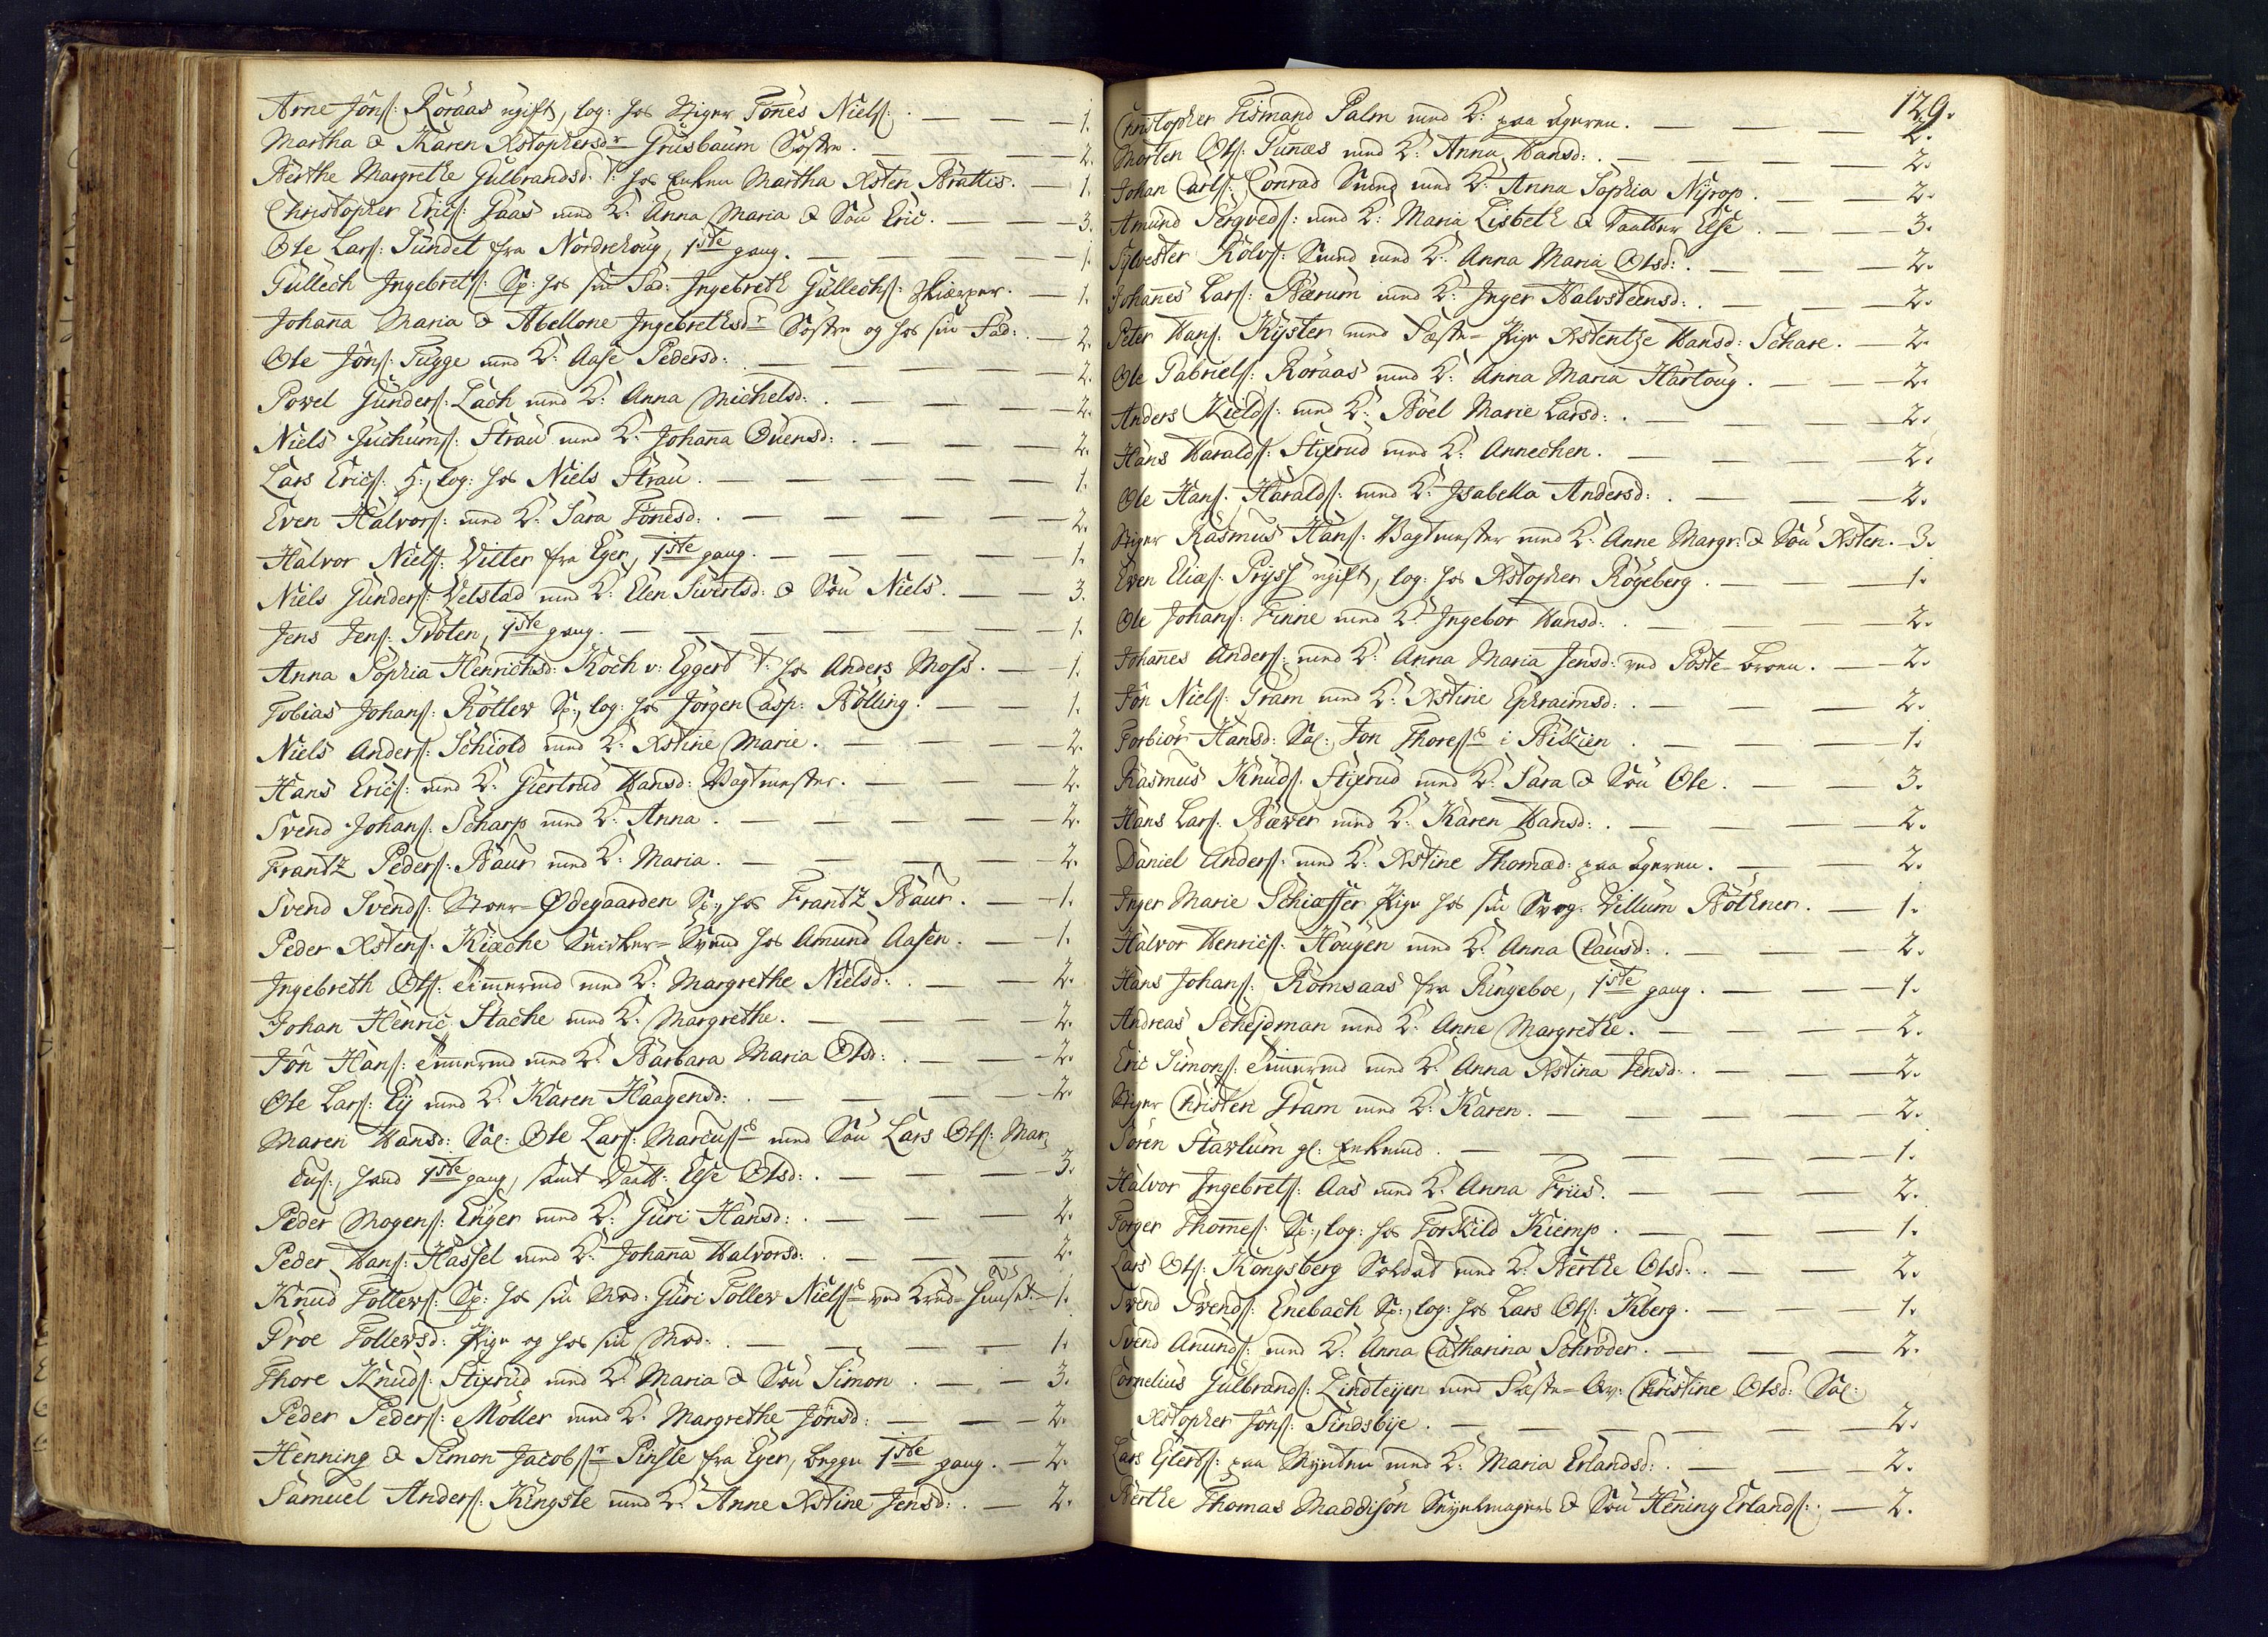 Arne Jönſ: Röraas ugift, log: hos Stiger Tönes Nielſ: . — — — 1.
Martha & Karen Xstophersdr Grusbaum Söstre . — — — 2.
Berthe Margrethe Gulbrandsd: T: hos Enken Martha Xsten Brattis. — 1.
Christopher Ericſ: Gaas med K: Anna Maria & Sön Eric. — — — 3.
Ole Larſ: Sundet fra Nordrehoug, 1ste gang. — — — 1.
Gullech Ingebretſ: Sp: hos sin Fad: Ingebreth Gullechſ: — 1.
Johanna Maria & Abellone Ingebrethsdr Söstre og hos sin Fad: . — 2.
Ole Jönſ: Tugge med K: Aase Pedersd: — — — 2.
Povel Gunderſ: Lach med K: Anna Michelsd: . — — — 2.
Niels Juchumſ: Strau med K: Johanna Ouensd: . — — — 2.
Lars Ericſ: H:, log: hos Niels Strau. — — — 1.
Even Halvorſ: med K: Sara Tönesd: . — — — 2.
Halvor Nielſ: Vitter fra Eger, 1ste gang. — — — 1.
Niels Gunderſ: Velstad med K: Elen Sivertsd: & Sön Niels. — — 3.
Jens Jenſ: Gröten, 1ste gang. — — — 1.
Anna Sophia Henrichsd: Koch v: Eggerd T: hos Anders Moss. — 1.
Tobias Johanſ: Rötlev Sp:, log: hos Jörgen Casp: Bölling. — — 1.
Niels Anderſ: Schiold med K: Xstine Marie. — — — 2.
Hans Ericſ: med K: Giertrud Hansd: Vagtmester. — — — 2.
Svend Johanſ: Scharp med K: Anna. — — — 2.
Frantz Pederſ: Baur med K: Maria. — — — 2.
Svend Svendſ: Stoer-Ødegaarden Sp:, hos Frantz Baur. — — 1.
Peder Xstenſ: Kiæche Snidker-Svend hos Amund Aasen. — — 1.
Ingebreth Olſ: Timmermd med K: Margrethe Nielsd: . — — 2.
Johan Henric Stache med K: Margrethe. — — — 2.
Jön Hanſ: Timmermd med K: Barbara Maria Olsd: . — — 2.
Ole Larſ: Ly med K: Karen Haagensd: . — — — 2.
Maren Hansd: Sal: Ole Larſ: Marcuſs med Sön Lars Olſ: Mar,
cuſ:, hand 1ste gang, samt Daatt: Else Olsd: . — — — 3.
Peder Mogenſ: Enger med K: Guri Hansd: . — — — 2.
Peder Hanſ: Hassel med K: Johana Halvorsd: . — — — 2.
Knud Tollevſ: Sp: hos sin Mod: Guri Tollev Nielſs ved Krud-Huuset. — 1.
Groe Tollevsd: Pige og hos sin Mod: . — — — 1.
Thore Knudſ: Stixrud med K: Maria & Sön Simon. — — 3.
Peder Pederſ: Möller med K: Margrethe Jönsd: — — — 2.
Henning & Simon Jacobſr Pinsle fra Eger, begge 1ste gang. — 2.
Samuel Anderſ: Kingsle med K: Anne Xstine Jensd: . — 2.
129.
Christopher Tismand Palm med K: paa Ageren. — — — 2.
Morten Olſ: Funæs med K: Anna Hansd: . — — — 2.
Johan Carlſ: Conrad Smed med K: Anna Sophia Nyrop. — — 2.
Amund Sergvedſ: med K: Maria Lisbeth & Daatter Else. — — 3.
Sylvester Rolvſ: Smed med K: Anna Maria Olsd: . — — — 2.
Johanes Larſ: Bærum med K: Inger Halvsteensd: . — — 2.
Peter Hanſ: Kyster med Fæste-Pige Xstentze Hansd: Schare. — 2.
Ole Gabrielſ: Röraas med K: Anna Maria Hartoug. — — 2.
Anders Kieldſ: med K: Böel Marie Larsd: . — — — 2.
Hans Haraldſ: Stixrud med K: Annechen. — — — 2.
Ole Hanſ: Haraldſ: med K: Isabella Andersd: . — — 2.
Stiger Rasmus Hanſ: Vagtmester med K: Anne Margr: & Sön Xsten. — 3.
Even Eliaſ: Prÿss ugift, log: hos Xstopher Rögeberg. — — 1.
Ole Johanſ: Finne med K: Ingebor Hansd: . — — — 2.
Johanes Anderſ: med K: Anna Maria Jensd: ved Poste-broen. — — 2.
Jön Nielſ: Gram med K: Xstine Ephraimsd: . — — — 2.
Torbiör Hansd: Sal: Jon Thoreſs i Bekien. — — — 1.
Rasmus Knudſ: Stixrud med K: Sara & Sön Ole. — — 3.
Hans Larſ: Bæver med K: Karen Hansd: . — — — 2.
Daniel Anderſ: med K: Xstine Thomæd: paa Ageren. — — 2.
Inger Marie Schiaffer Pige hos sin Svog: Villum Böthner. — 1.
Halvor Henricſ: Hougen med K: Anna Clausd: . — — — 2.
Hans Johanſ: Romsaas fra Ringeboe, 1ste gang. — — — 1.
Andreas Schejdman med K: Anne Margrethe. — — — 2.
Eric Simonſ: Timmermd med K: Anna Xstina Jensd: . — — 2.
Stiger Christen Gram med K: Karen. — — — 2.
Sören Stavlum gl: Enkemd. — — — 1.
Halvor Ingebretſ: Aas med K: Anna Friis. — — — 2.
Torger Thomeſ: Sp:, log: hos Torkild Kiemp. — — — 1.
Lars Olſ: Kongsberg Soldat med K: Berthe Olsd: . — — 2.
Svend Svendſ: Enebach Sp:, log: hos Lars Olſ: Kberg. — — 1.
Svend Amundſ: med K: Anna Catharina Schröder. — — — 2.
Cornelius Gulbrandſ: Lindtejen med Fæste-Qv: Christine Olsd: Sal:
Xstopher Jönſ: Sindsbye. — — — 2.
Lars Ejlertſ: paa Mynten med K: Maria Erlandsd: . — — 2.
Berthe Thomas Maddison Seyelmagers & Sön Hening Erlandſ: . — 2.